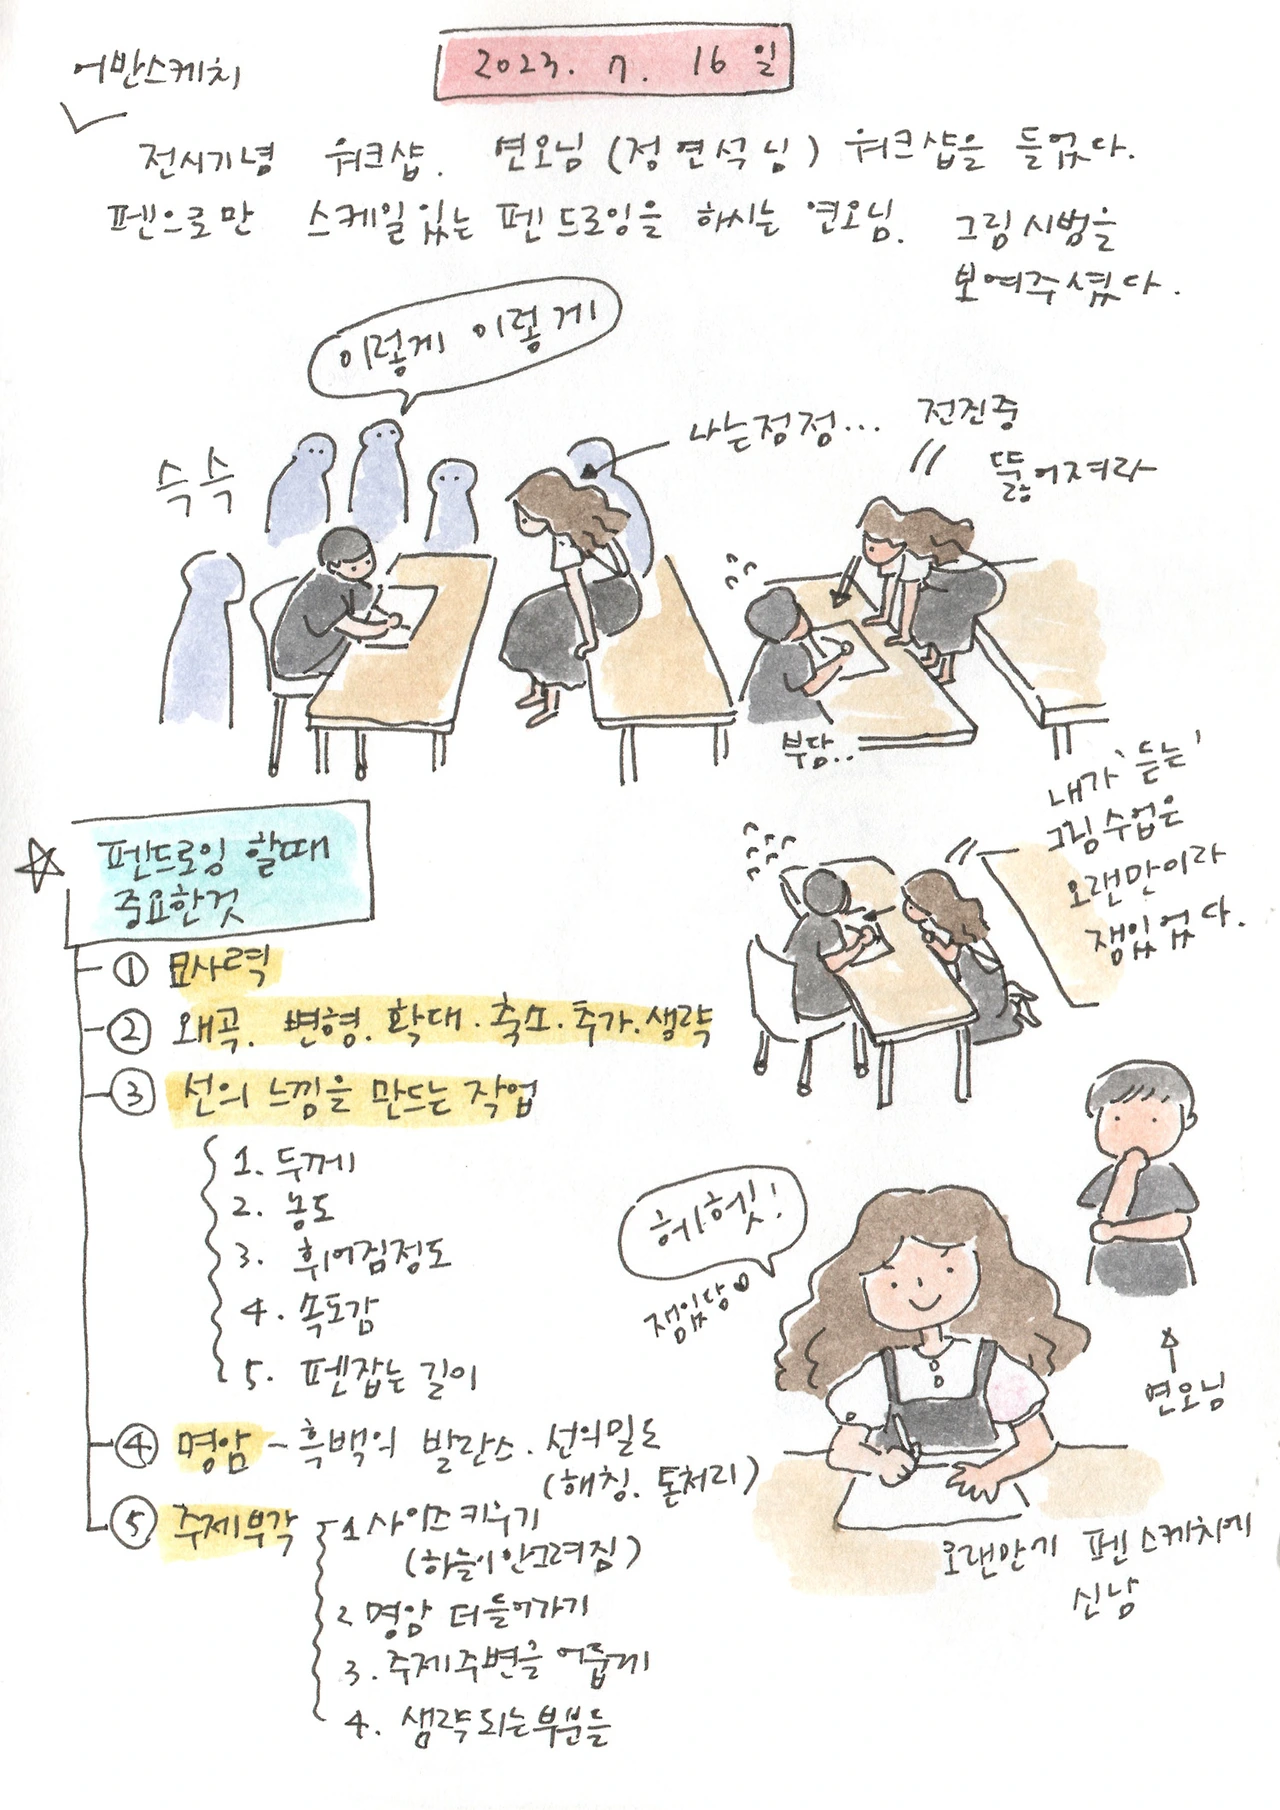 2023. 7. 16 일
어반스케치
전시기념 워크샵. 연오님 (정연석님) 워크샵을 들었다.
펜으로만 스케일있는 펜드로잉을 하시는 연오님. 그림시범을
보여주셨다.
이렇게 이렇게
슥슥
나는정정...
전진중
뚫어져라
부담..
내가 '듣는'
그림수업은
오랜만이라
잼있었다.
펜드로잉 할때
중요한것
① 묘사력
② 왜곡. 변형. 확대. 축소. 추가. 생략
③ 선의 느낌을 만드는 작업
1. 두께
2. 농도
3. 휘어짐정도
4. 속도감
5. 펜잡는 길이
헤헤헷!
잼있당
연오님
④ 명암 - 흑백의 발란스. 선의밀도
(해칭. 톤처리)
⑤ 주제부각
1 사이즈키우기
(하늘이안그려짐)
2 명암 더들어가기
3. 주제주변을 어둡게
4. 생략되는부분들
오랜만에 펜스케치에
신남